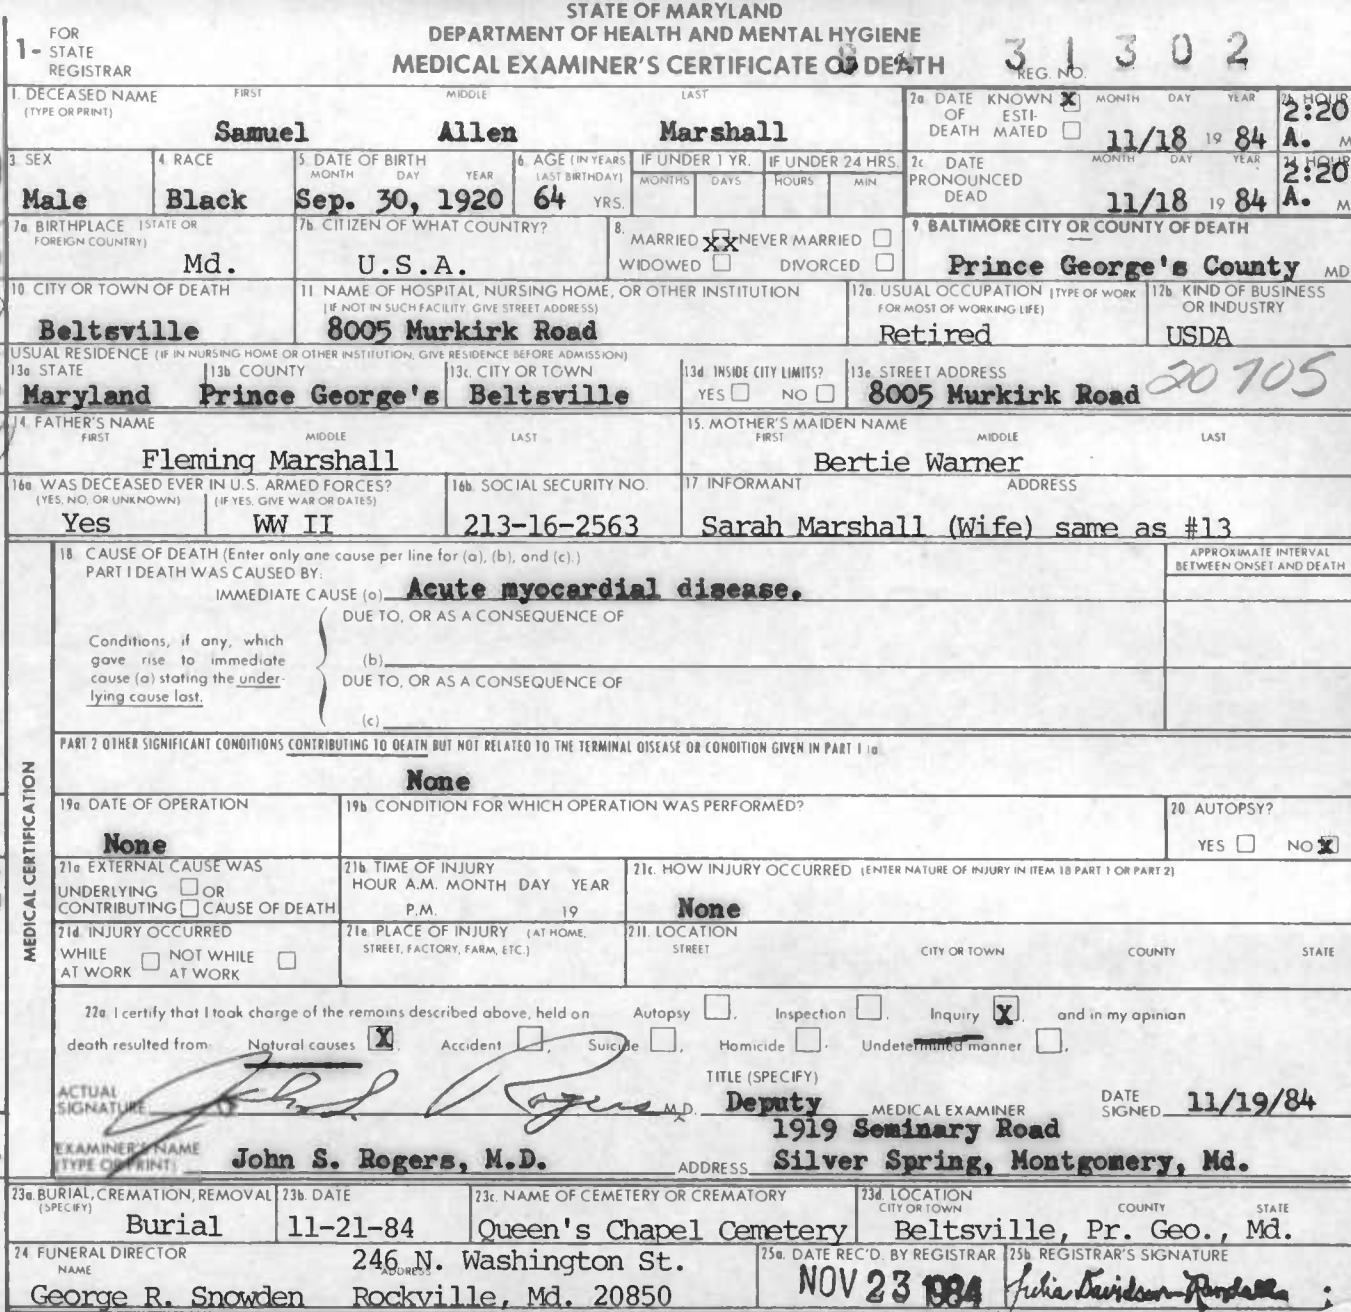 STATE OF MARYLAND
DEPARTMENT OF HEALTH AND MENTAL HYGIENE
MEDICAL EXAMINER'S CERTIFICATE OF DEATH
1- FOR STATE REGISTRAR
REG. NO. 31302
1. DECEASED NAME (TYPE OR PRINT) FIRST MIDDLE LAST
Samuel Allen Marshall
2a DATE OF DEATH KNOWN X ESTIMATED MONTH DAY YEAR
11/18 19 84
2b HOUR
2:20 A. M
3 SEX
Male
4. RACE
Black
5. DATE OF BIRTH MONTH DAY YEAR
Sep. 30, 1920
6. AGE (IN YEARS LAST BIRTHDAY)
64 YRS.
IF UNDER 1 YR. MONTHS DAYS
IF UNDER 24 HRS. HOURS MIN
2c DATE PRONOUNCED DEAD MONTH DAY YEAR
11/18 19 84
2d HOUR
2:20 A. M
7a. BIRTHPLACE (STATE OR FOREIGN COUNTRY)
Md.
7b. CITIZEN OF WHAT COUNTRY?
U.S.A.
8. MARRIED XX NEVER MARRIED
WIDOWED DIVORCED
9. BALTIMORE CITY OR COUNTY OF DEATH
Prince George's County MD
10. CITY OR TOWN OF DEATH
Beltsville
11 NAME OF HOSPITAL, NURSING HOME, OR OTHER INSTITUTION
(IF NOT IN SUCH FACILITY, GIVE STREET ADDRESS)
8005 Murkirk Road
12a. USUAL OCCUPATION (TYPE OF WORK FOR MOST OF WORKING LIFE)
Retired
12b. KIND OF BUSINESS OR INDUSTRY
USDA
USUAL RESIDENCE (IF IN NURSING HOME OR OTHER INSTITUTION, GIVE RESIDENCE BEFORE ADMISSION)
13a STATE
Maryland
13b COUNTY
Prince George's
13c. CITY OR TOWN
Beltsville
13d INSIDE CITY LIMITS?
YES NO
13e STREET ADDRESS
8005 Murkirk Road 20705
14. FATHER'S NAME FIRST MIDDLE LAST
Fleming Marshall
15. MOTHER'S MAIDEN NAME FIRST MIDDLE LAST
Bertie Warner
16a WAS DECEASED EVER IN U.S. ARMED FORCES?
(YES, NO, OR UNKNOWN) (IF YES, GIVE WAR OR DATES)
Yes WW II
16b. SOCIAL SECURITY NO.
213-16-2563
17 INFORMANT ADDRESS
Sarah Marshall (Wife) same as #13
MEDICAL CERTIFICATION
18. CAUSE OF DEATH (Enter only one cause per line for (a), (b), and (c).)
PART I DEATH WAS CAUSED BY:
IMMEDIATE CAUSE (a) Acute myocardial disease.
APPROXIMATE INTERVAL BETWEEN ONSET AND DEATH
Conditions, if any, which gave rise to immediate cause (a) stating the underlying cause last.
DUE TO, OR AS A CONSEQUENCE OF
(b)
DUE TO, OR AS A CONSEQUENCE OF
(c)
PART 2 OTHER SIGNIFICANT CONDITIONS CONTRIBUTING TO DEATH BUT NOT RELATED TO THE TERMINAL DISEASE OR CONDITION GIVEN IN PART 1 (a
None
19a DATE OF OPERATION
None
19b CONDITION FOR WHICH OPERATION WAS PERFORMED?
20 AUTOPSY?
YES NO X
21a EXTERNAL CAUSE WAS
UNDERLYING OR
CONTRIBUTING CAUSE OF DEATH
21b. TIME OF INJURY
HOUR A.M. MONTH DAY YEAR
P.M. 19
21c. HOW INJURY OCCURRED (ENTER NATURE OF INJURY IN ITEM 18 PART 1 OR PART 2)
None
21d INJURY OCCURRED
WHILE AT WORK NOT WHILE AT WORK
21e PLACE OF INJURY (AT HOME, STREET, FACTORY, FARM, ETC.)
21f. LOCATION
STREET CITY OR TOWN COUNTY STATE
22a I certify that I took charge of the remains described above, held on Autopsy , Inspection , Inquiry X , and in my opinion
death resulted from Natural causes X , Accident , Suicide , Homicide , Undetermined manner .
ACTUAL SIGNATURE John S. Rogers M.D.
TITLE (SPECIFY)
Deputy MEDICAL EXAMINER
DATE SIGNED 11/19/84
EXAMINER'S NAME (TYPE OR PRINT) John S. Rogers, M.D.
ADDRESS 1919 Seminary Road
Silver Spring, Montgomery, Md.
23a. BURIAL, CREMATION, REMOVAL (SPECIFY)
Burial
23b. DATE
11-21-84
23c. NAME OF CEMETERY OR CREMATORY
Queen's Chapel Cemetery
23d. LOCATION CITY OR TOWN COUNTY STATE
Beltsville, Pr. Geo., Md.
24 FUNERAL DIRECTOR NAME
George R. Snowden
ADDRESS
246 N. Washington St.
Rockville, Md. 20850
25a. DATE REC'D. BY REGISTRAR
NOV 23 1984
25b. REGISTRAR'S SIGNATURE
Julia Davidson-Randall